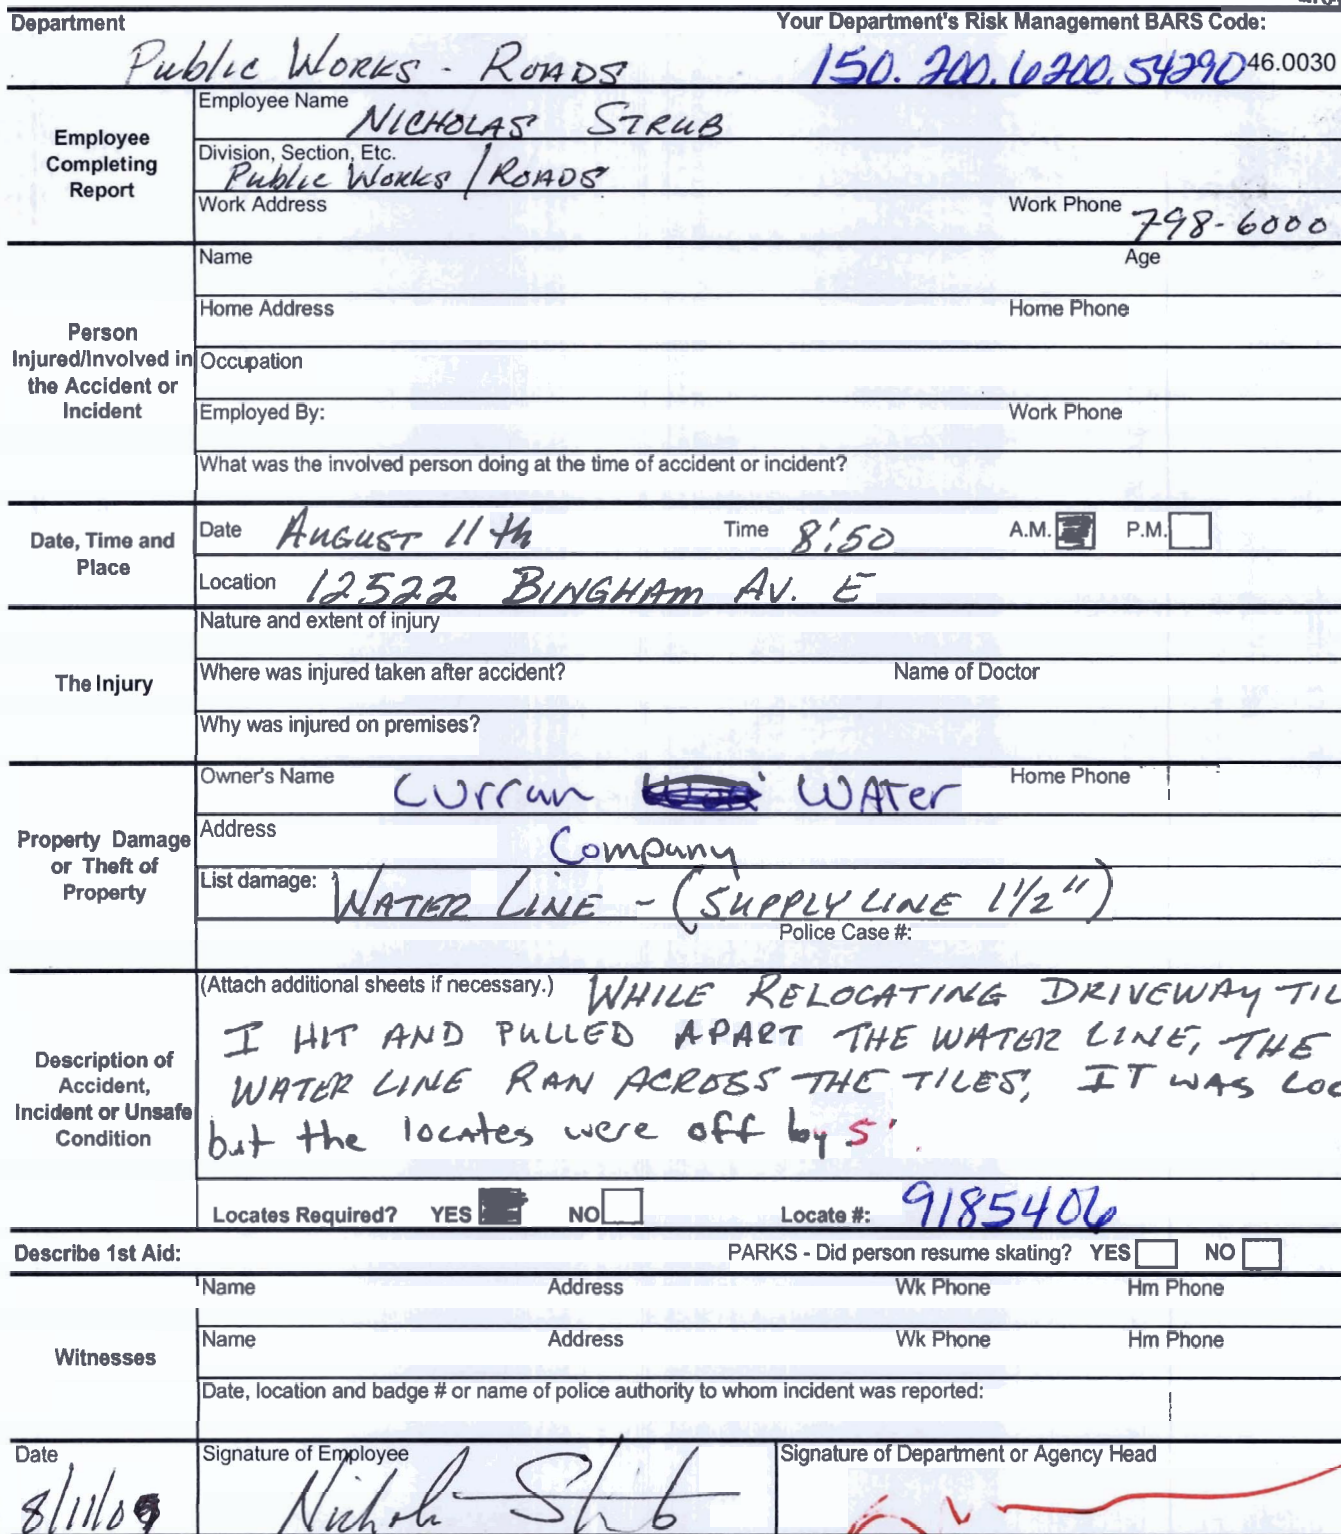 Department Your Department's Risk Management BARS Code:
Public Works - Roads 150.200.6200.54290 46.0030
Employee Completing Report
Employee Name NICHOLAS STRUB
Division, Section, Etc.
Public Works / ROADS
Work Address Work Phone 798-6000
Person Injured/Involved in the Accident or Incident
Name Age
Home Address Home Phone
Occupation
Employed By: Work Phone
What was the involved person doing at the time of accident or incident?
Date, Time and Place
Date AUGUST 11th Time 8:50 A.M. P.M.
Location 12522 BINGHAM AV. E
The Injury
Nature and extent of injury
Where was injured taken after accident? Name of Doctor
Why was injured on premises?
Property Damage or Theft of Property
Owner's Name Curran WATer Home Phone
Address Company
List damage: WATER LINE - (SUPPLY LINE 1 1/2")
Police Case #:
Description of Accident, Incident or Unsafe Condition
(Attach additional sheets if necessary.) WHILE RELOCATING DRIVEWAY TIL
I HIT AND PULLED APART THE WATER LINE, THE
WATER LINE RAN ACROSS THE TILES, IT WAS LOC
but the locates were off by 5'.
Locates Required? YES NO Locate #: 9185406
Describe 1st Aid: PARKS - Did person resume skating? YES NO
Witnesses
Name Address Wk Phone Hm Phone
Name Address Wk Phone Hm Phone
Date, location and badge # or name of police authority to whom incident was reported:
Date Signature of Employee Signature of Department or Agency Head
8/11/09 Nichola Strub